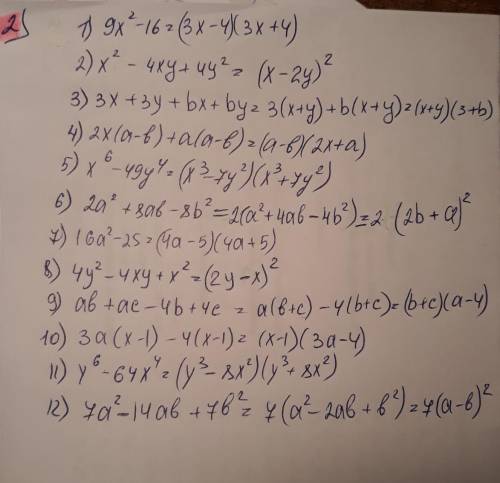 2)
1) 9x² - 16 = (3x - 4)(3x + 4)
2) x² - 4xy + 4y² = (x - 2y)²
3) 3x + 3y + bx + by = 3(x+y) + b(x+y) = (x+y)(3+b)
4) 2x(a-в) + a(a-в) = (a-в)(2x+a)
5) x⁶ - 49y⁴ = (x³ - 7y²)(x³ + 7y²)
6) 2a² + 8ab - 8b² = 2(a² + 4ab - 4b²) = 2 · (2b + a)²
7) 16a² - 25 = (4a - 5)(4a + 5)
8) 4y² - 4xy + x² = (2y - x)²
9) aв + ac - 4b + 4c = a(в+c) - 4(b+c) = (b+c)(a-4)
10) 3a(x-1) - 4(x-1) = (x-1)(3a-4)
11) y⁶ - 64x⁴ = (y³ - 8x²)(y³ + 8x²)
12) 7a² - 14aв + 7в² = 7(a² - 2aв + в²) = 7(a-в)²